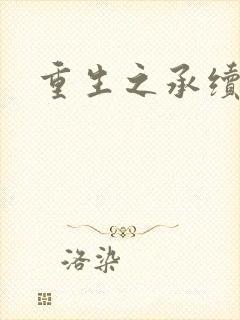 重生之承续
洛染